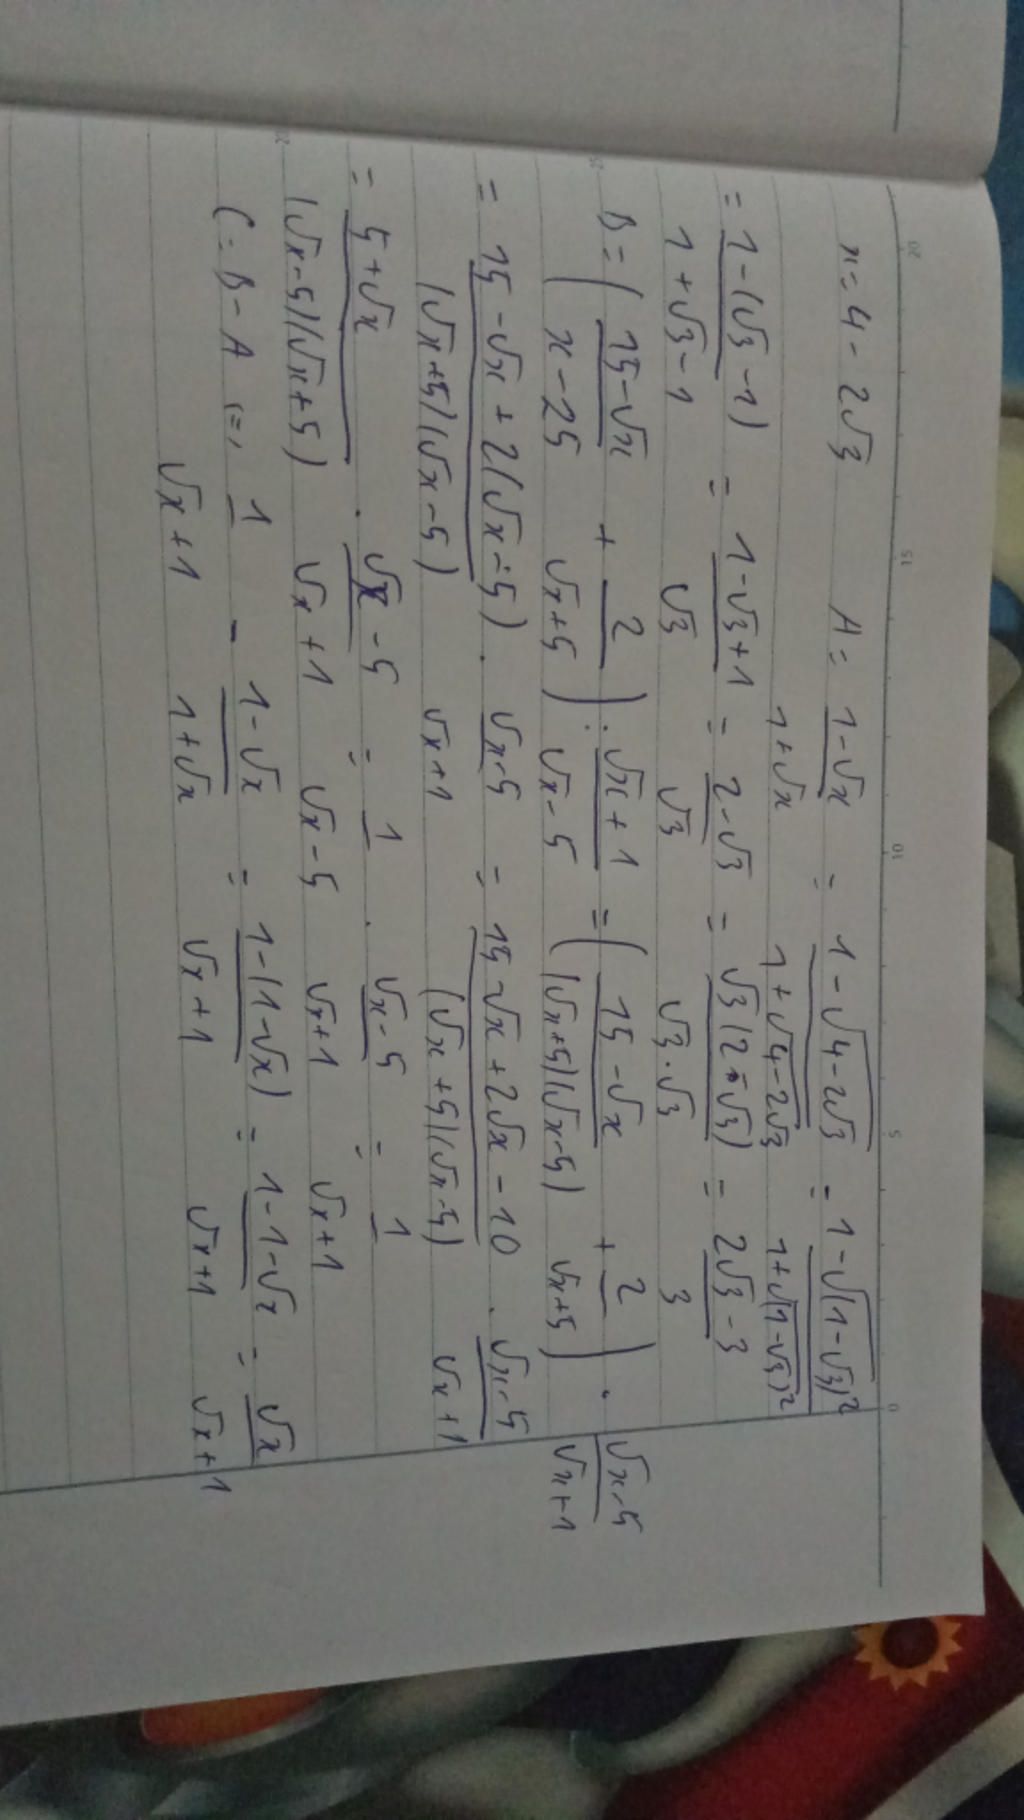 x = 4 - 2√3 A = (1-√x)/(1+√x) = (1-√(4-2√3))/(1+√(4-2√3)) = (1-√(1-√3)²)/(1+√(1-√3)²)
= (1-(√3-1))/(1+√3-1) = (1-√3+1)/√3 = (2-√3)/√3 = (√3(2-√3))/(√3.√3) = (2√3-3)/3
B = ((15-√x)/(x-25) + 2/(√x+5)) : (√x+1)/(√x-5) = ((15-√x)/((√x+5)(√x-5)) + 2/(√x+5)) . (√x-5)/(√x+1)
= (15-√x+2(√x-5))/((√x+5)(√x-5)) . (√x-5)/(√x+1) = (15-√x+2√x-10)/((√x+5)(√x-5)) . (√x-5)/(√x+1)
= (5+√x)/((√x-5)(√x+5)) . (√x-5)/(√x+1) = 1/(√x-5) . (√x-5)/(√x+1) = 1/(√x+1)
C = B - A (=) 1/(√x+1) - (1-√x)/(1+√x) = (1-(1-√x))/(√x+1) = (1-1-√x)/(√x+1) = √x/(√x+1)
20
15
10
5
0